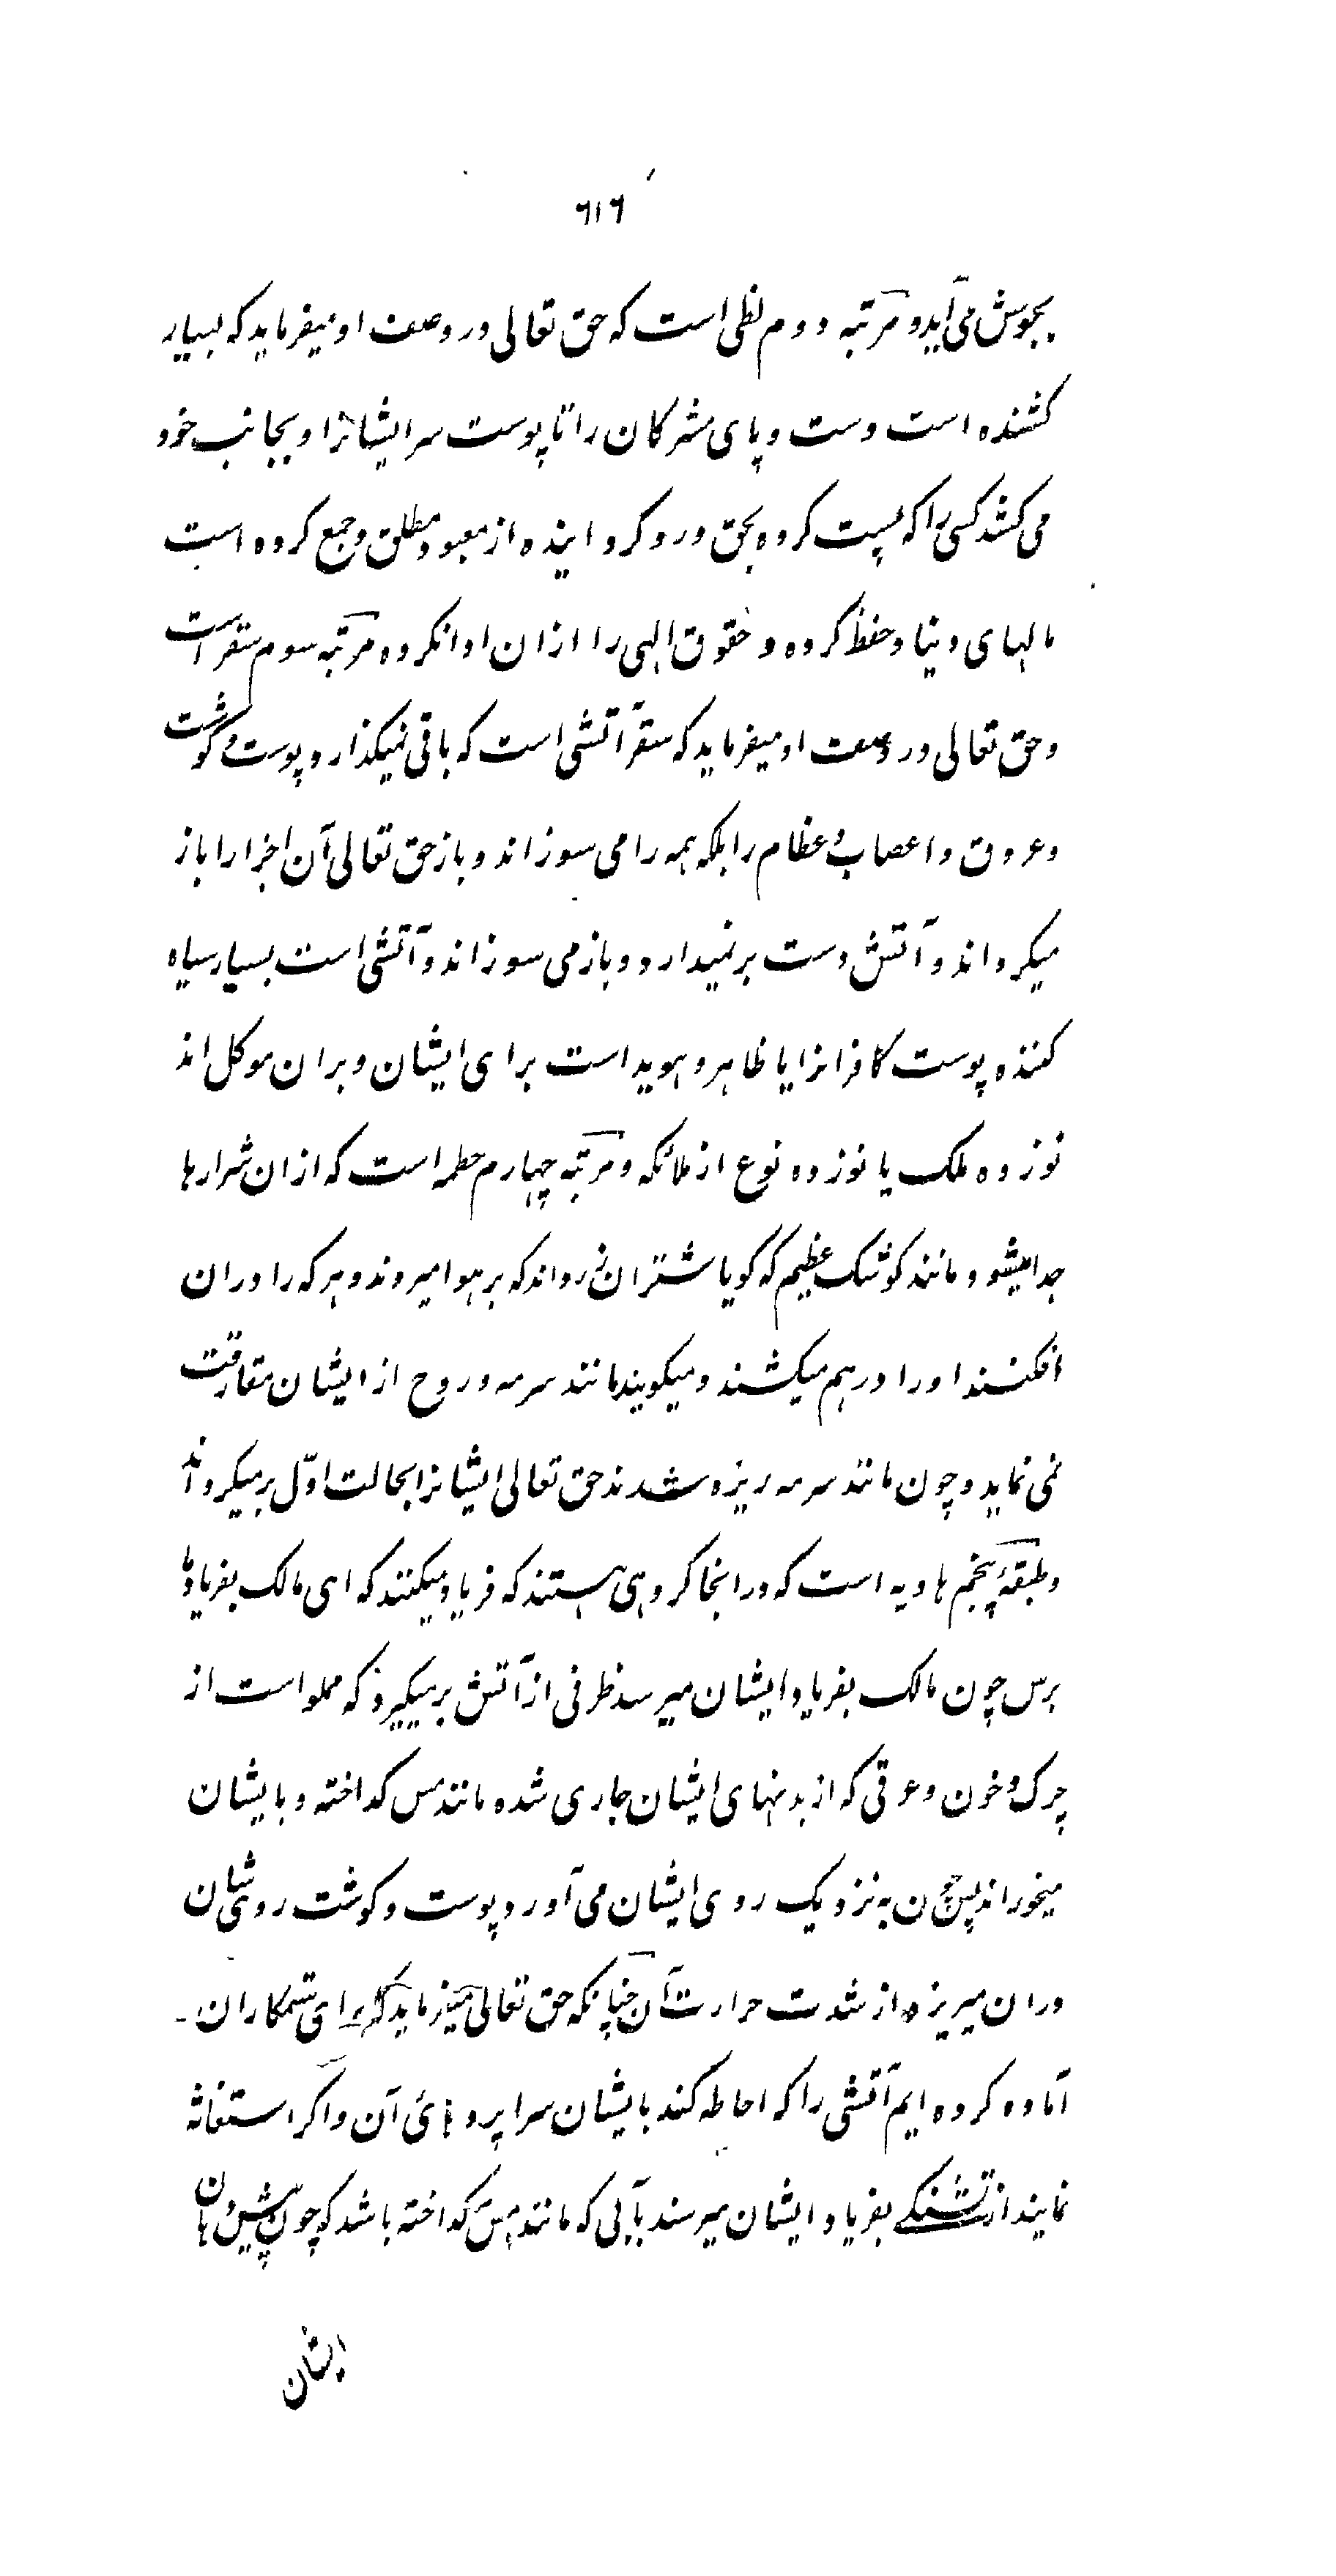 ٦١٦
بجوش می آید و مرتبه دوم لظی است که حق تعالی در وصف او میفرماید که بسیار
کشنده است دست و پای مشرکان را تا پوست سر ایشانرا و بجانب خود
می کشد کسی را که پشت کرده بحق و رو گردانیده از معبود مطلق و جمع کرده است
مالهای دنیا و حفظ کرده و حقوق الهی را ازان ادا نکرده مرتبه سوم سقر است
و حق تعالی در وصف او میفرماید که سقر آتشی است که باقی نمیگذارد پوست و گوشت
و عروق و اعصاب و عظام را بلکه همه را می سوزاند و باز حق تعالی آن اجزا را باز
میگرداند و آتش دست برنمیدارد و باز می سوزاند و آتشی است بسیار سیاه
کننده پوست کافرانرا یا ظاهر و هویداست برای ایشان و بران موکل اند
نوزده ملک یا نوزده نوع از ملائکه و مرتبه چهارم حطمه است که ازان شرارها
جدا میشود مانند کوشک عظیم که گویا شتران زرداند که بر هوا میروند و هر که را دران
افکنند او را درهم میکشند و میکوبند مانند سرمه و روح از ایشان مفارقت
نمی نماید و چون مانند سرمه ریزه شدند حق تعالی ایشانرا بحالت اوّل برمیگرداند
و طبقهٔ پنجم هاویه است که درانجا گروهی هستند که فریاد میکنند که ای مالک بفریاد ما
برس چون مالک بفریاد ایشان میرسد ظرفی از آتش برمیگیرد که مملو است از
چرک و خون و عرقی که از بدنهای ایشان جاری شده مانند مس گداخته و بایشان
میخوراند پس چون به نزدیک روی ایشان می آورد پوست و گوشت روی شان
دران میریزد از شدت حرارت آن چنانکه حق تعالی میفرماید که برای ستمکاران
آماده کرده ایم آتشی را که احاطه کند بایشان سراپردهائ آن و اگر استغاثه
نمایند از تشنگی بفریاد ایشان میرسند بآبی که مانند مس گداخته باشد که چون پیش دهان
ایشان